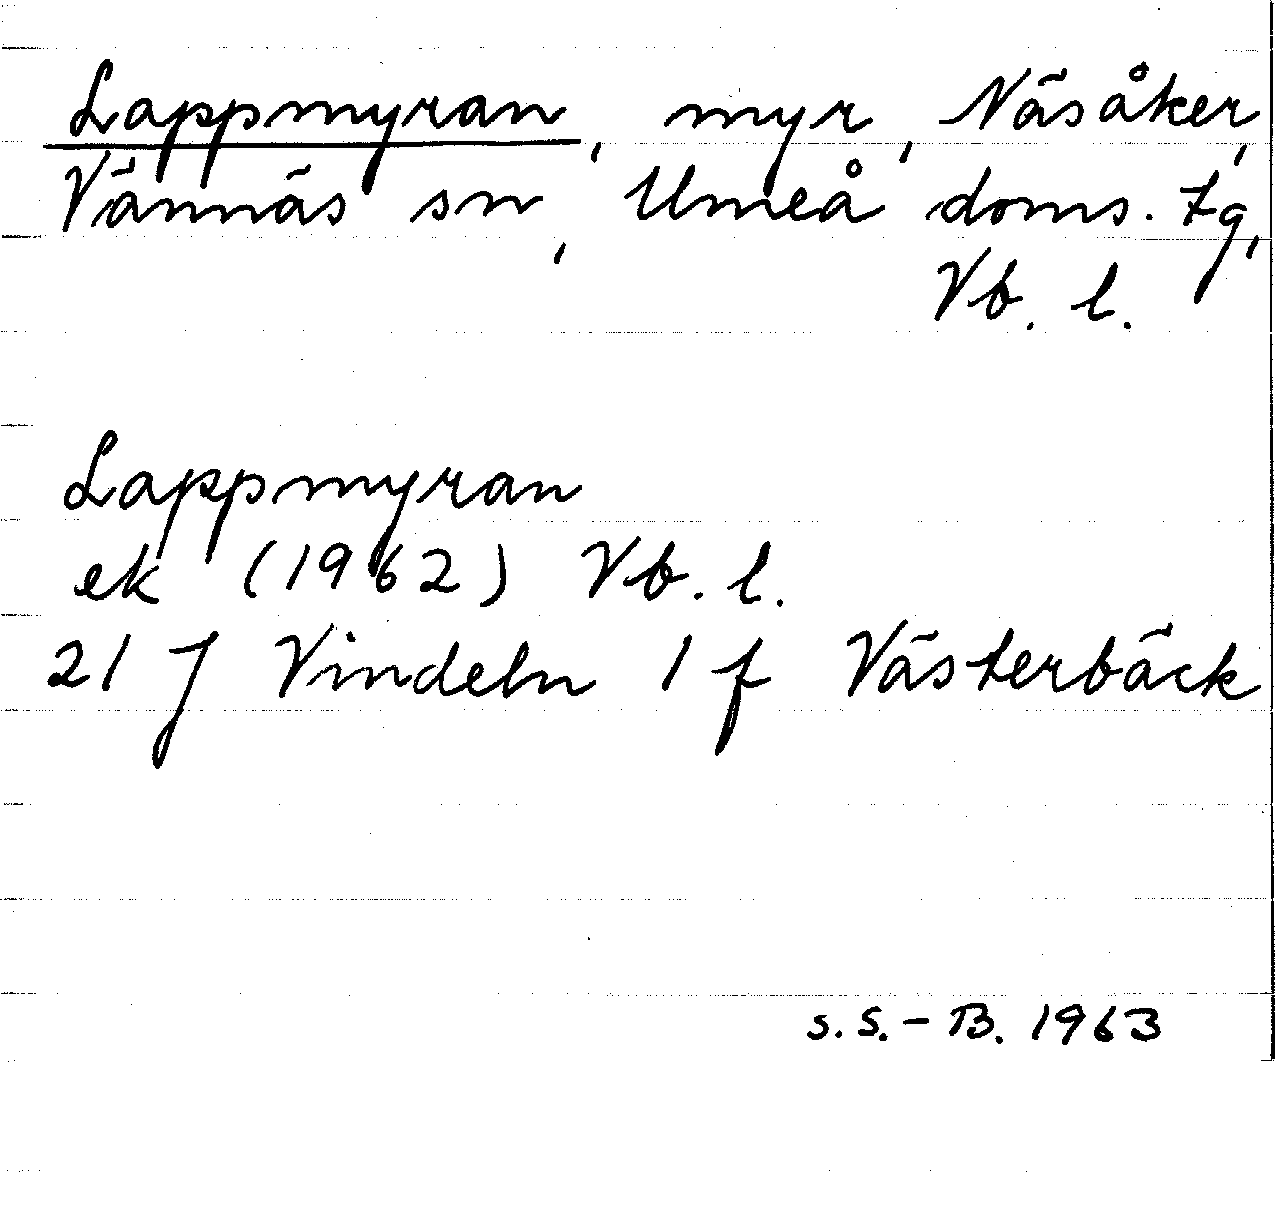 Lappmyran, myr, Näsåker,
Vännäs sn, Umeå doms. tg,
Vb. l.
Lappmyran
ek (1962) Vb. l.
21 J Vindeln 1 f Västerbäck
S. S. - B. 1963